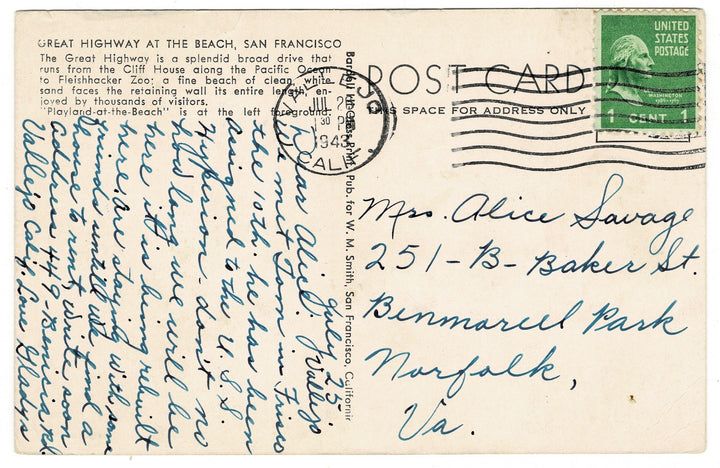 GREAT HIGHWAY AT THE BEACH, SAN FRANCISCO
The Great Highway is a splendid broad drive that
runs from the Cliff House along the Pacific Ocean
to Fleishhacker Zoo; a fine beach of clean, white
sand faces the retaining wall its entire length, en-
joyed by thousands of visitors.
"Playland-at-the-Beach" is at the left foreground.
July 25 Vallejo
Dear Alice.
We met Tom in Frisco
the 10th. he has been
assigned to the U.S.S.
Hyperion - don't no
how long we will be
here it is being rebuilt
here. Are staying with some
friends untill we find a
house to rent, write soon
address 449-Benicia Rd.
Vallejo Calif. Love Gladys
Pub. for W. M. Smith, San Francisco, California
VALLEJO
JUL
30 PM
1943
CALIF.
POST CARD
THIS SPACE FOR ADDRESS ONLY
UNITED
STATES
POSTAGE
WASHINGTON
1 CENT 1
Mrs. Alice Savage
251-B-Baker St.
Benmoreell Park
Norfolk,
Va.